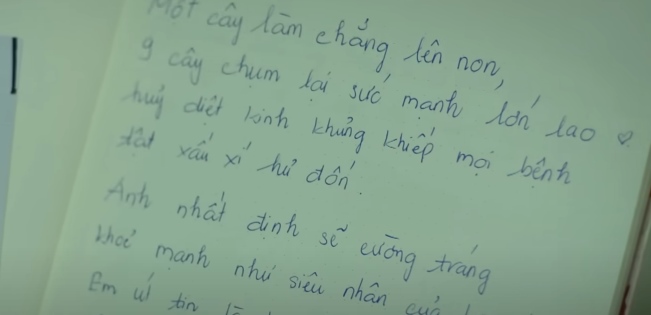 Một cây làm chẳng lên non,
9 cây chụm lại sức mạnh lớn lao
huỷ diệt kinh khủng khiếp mọi bệnh
tật xấu xí hư đốn.
Anh nhất định sẽ cường tráng
khoẻ mạnh như siêu nhân của
Em tin